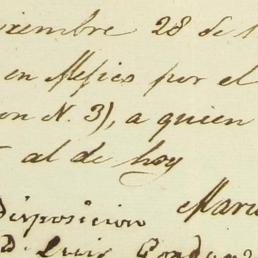 viembre 28 de 1
en Mejico por el
on N. 3), a quien
al de hoy
Mari
Disposicion
D. Luis